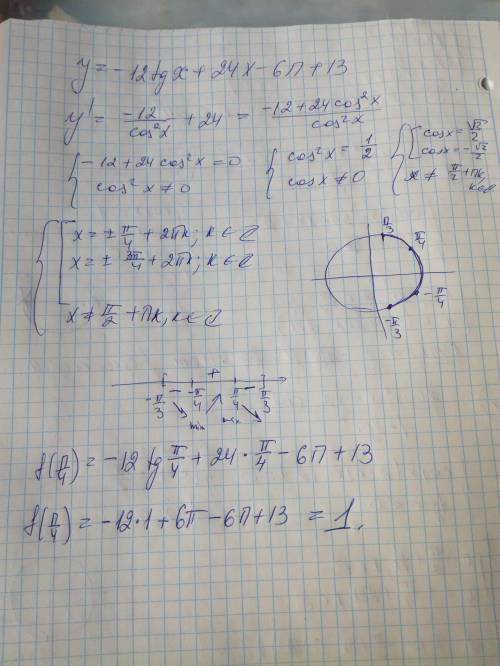 y = -12tgx + 24x - 6π + 13
y' = -12/cos²x + 24 = (-12 + 24cos²x)/cos²x
{ -12 + 24cos²x = 0 { cos²x = 1/2 { [ cosx = √2/2
cos²x ≠ 0 cosx ≠ 0 cosx = -√2/2
x ≠ π/2 + πk, k∈Z
{ [ x = ± π/4 + 2πk; k∈Z
x = ± 3π/4 + 2πk; k∈Z
x ≠ π/2 + πk, k∈Z
π/3
π/4
-π/4
-π/3
- + -
-π/3 -π/4 π/4 π/3
min
f(π/4) = -12 tg π/4 + 24 · π/4 - 6π + 13
f(π/4) = -12·1 + 6π - 6π + 13 = 1.